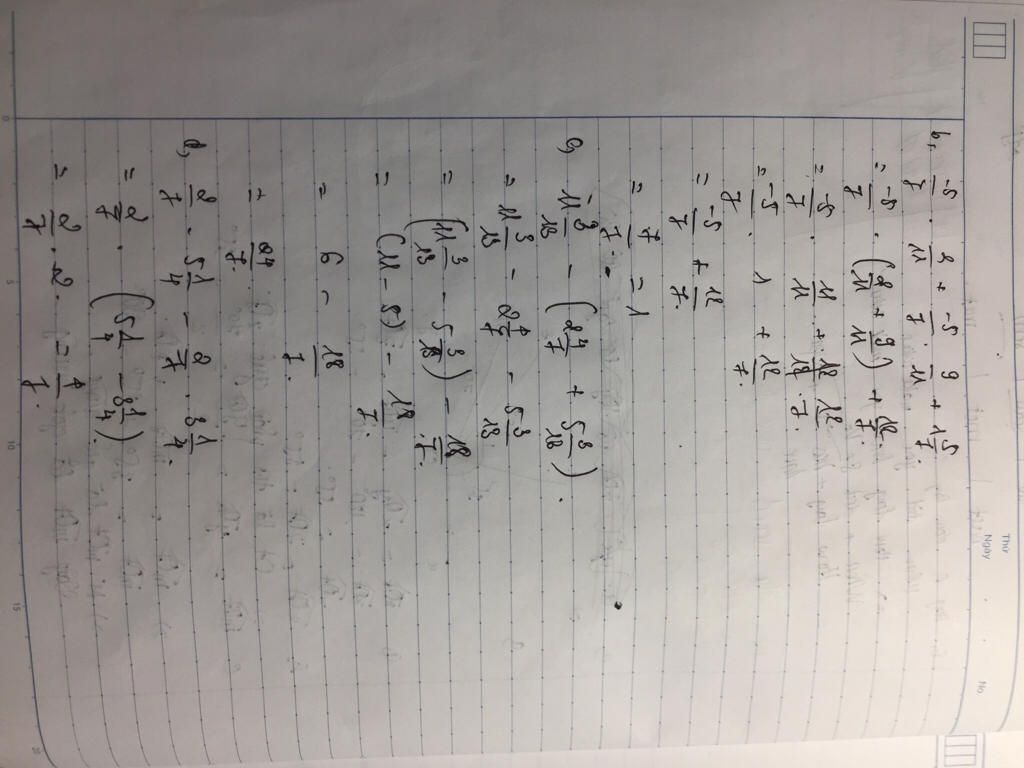 Thứ
Ngày
No.
b, -5/7 . 2/11 + -5/7 . 9/11 + 1 5/7.
= -5/7 . (2/11 + 9/11) + 12/7.
= -5/7 . 11/11 + 12/7.
= -5/7 . 1 + 12/7.
= -5/7 + 12/7.
= 7/7 = 1
c, 11 3/13 - (2 4/7 + 5 3/13).
= 11 3/13 - 2 4/7 - 5 3/13
= (11 3/13 - 5 3/13) - 18/7.
= (11 - 5) - 18/7.
= 6 - 18/7.
= 24/7.
d, 2/7 . 5 1/4 - 2/7 . 3 1/4.
= 2/7 . (5 1/4 - 3 1/4).
= 2/7 . 2 . = 4/7.
0
5
10
15